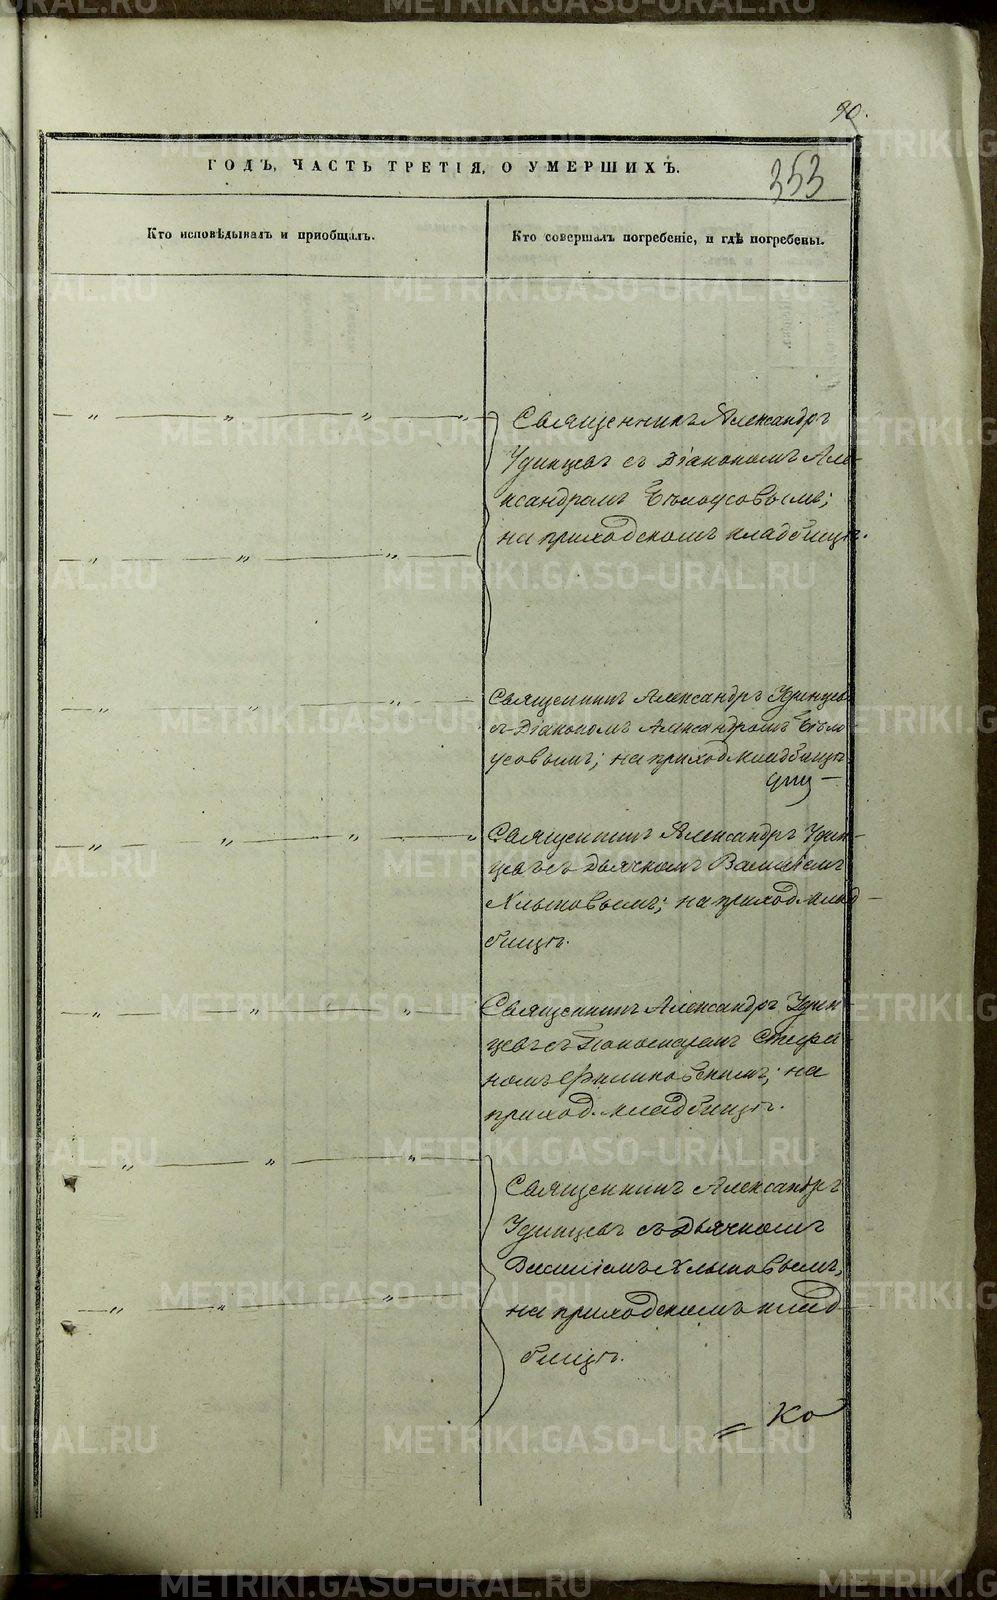 90.
ГОДЪ, ЧАСТЬ ТРЕТІЯ, О УМЕРШИХЪ.
353
Кто исповѣдывалъ и пріобщалъ.
Кто совершалъ погребеніе, и гдѣ погребены.
Священникъ Александръ
Удинцевъ съ Діакономъ Але-
ксандромъ Бѣлоусовымъ;
на приходскомъ кладбищѣ.
Священникъ Александръ Удинцевъ
съ Діакономъ Александромъ Бѣло
усовымъ; на приход. кладбищѣ
Священникъ Александръ Удин-
цевъ съ Дьячкомъ Василіемъ
Хлыновымъ; на приход. клад-
бищѣ.
Священникъ Александръ Удин-
цевъ съ Пономаремъ Стефа-
номъ Филиповскимъ; на
приход. кладбищѣ.
Священникъ Александръ
Удинцевъ съ Дьячкомъ
Василіемъ Хлыновымъ,
на приходскомъ клад-
бищѣ.
= Ко
METRIKI.GASO-URAL.RU